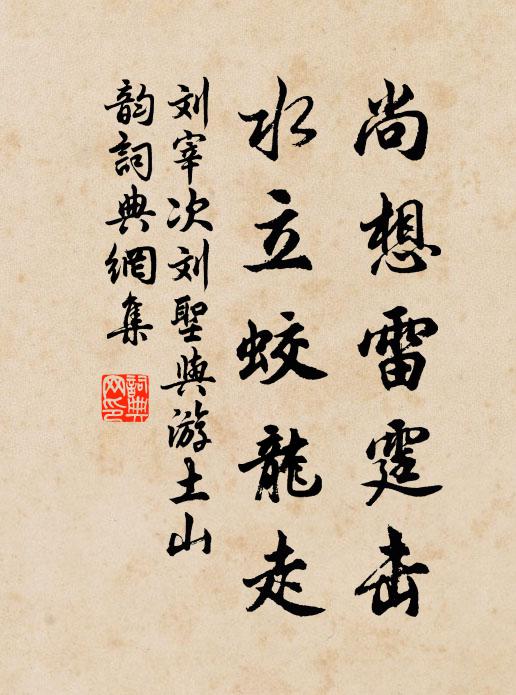 尚想雷霆击
水立蛟龍走
刘宰次刘聖與游土山
韵詞典網集
詞典网印